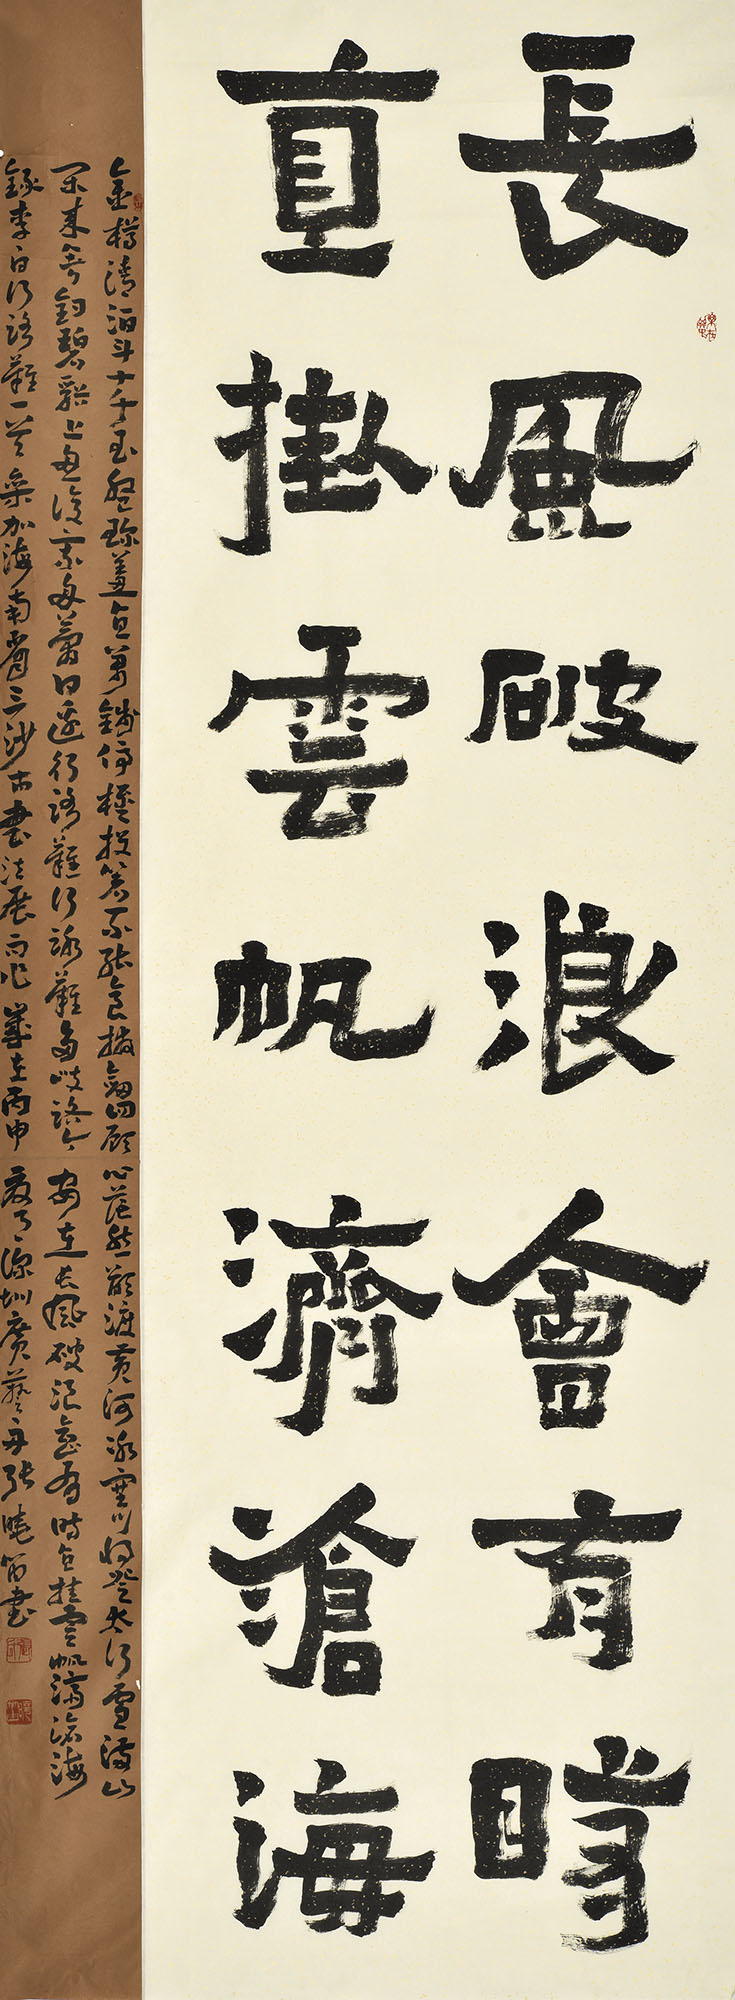 長風破浪會有時
直掛雲帆濟滄海
金樽清酒斗十千玉盤珍羞直萬錢停杯投箸不能食拔劍四顧心茫然欲渡黄河冰塞川將登太行雪滿山
閑來垂釣碧谿上忽復乘舟夢日邊行路難行路難多歧路今安在長風破浪會有時直挂雲帆濟滄海
錄李白行路難一首參加海南省三沙市書法展而作歲在丙申夏月深圳廣藝舟張曉笛書